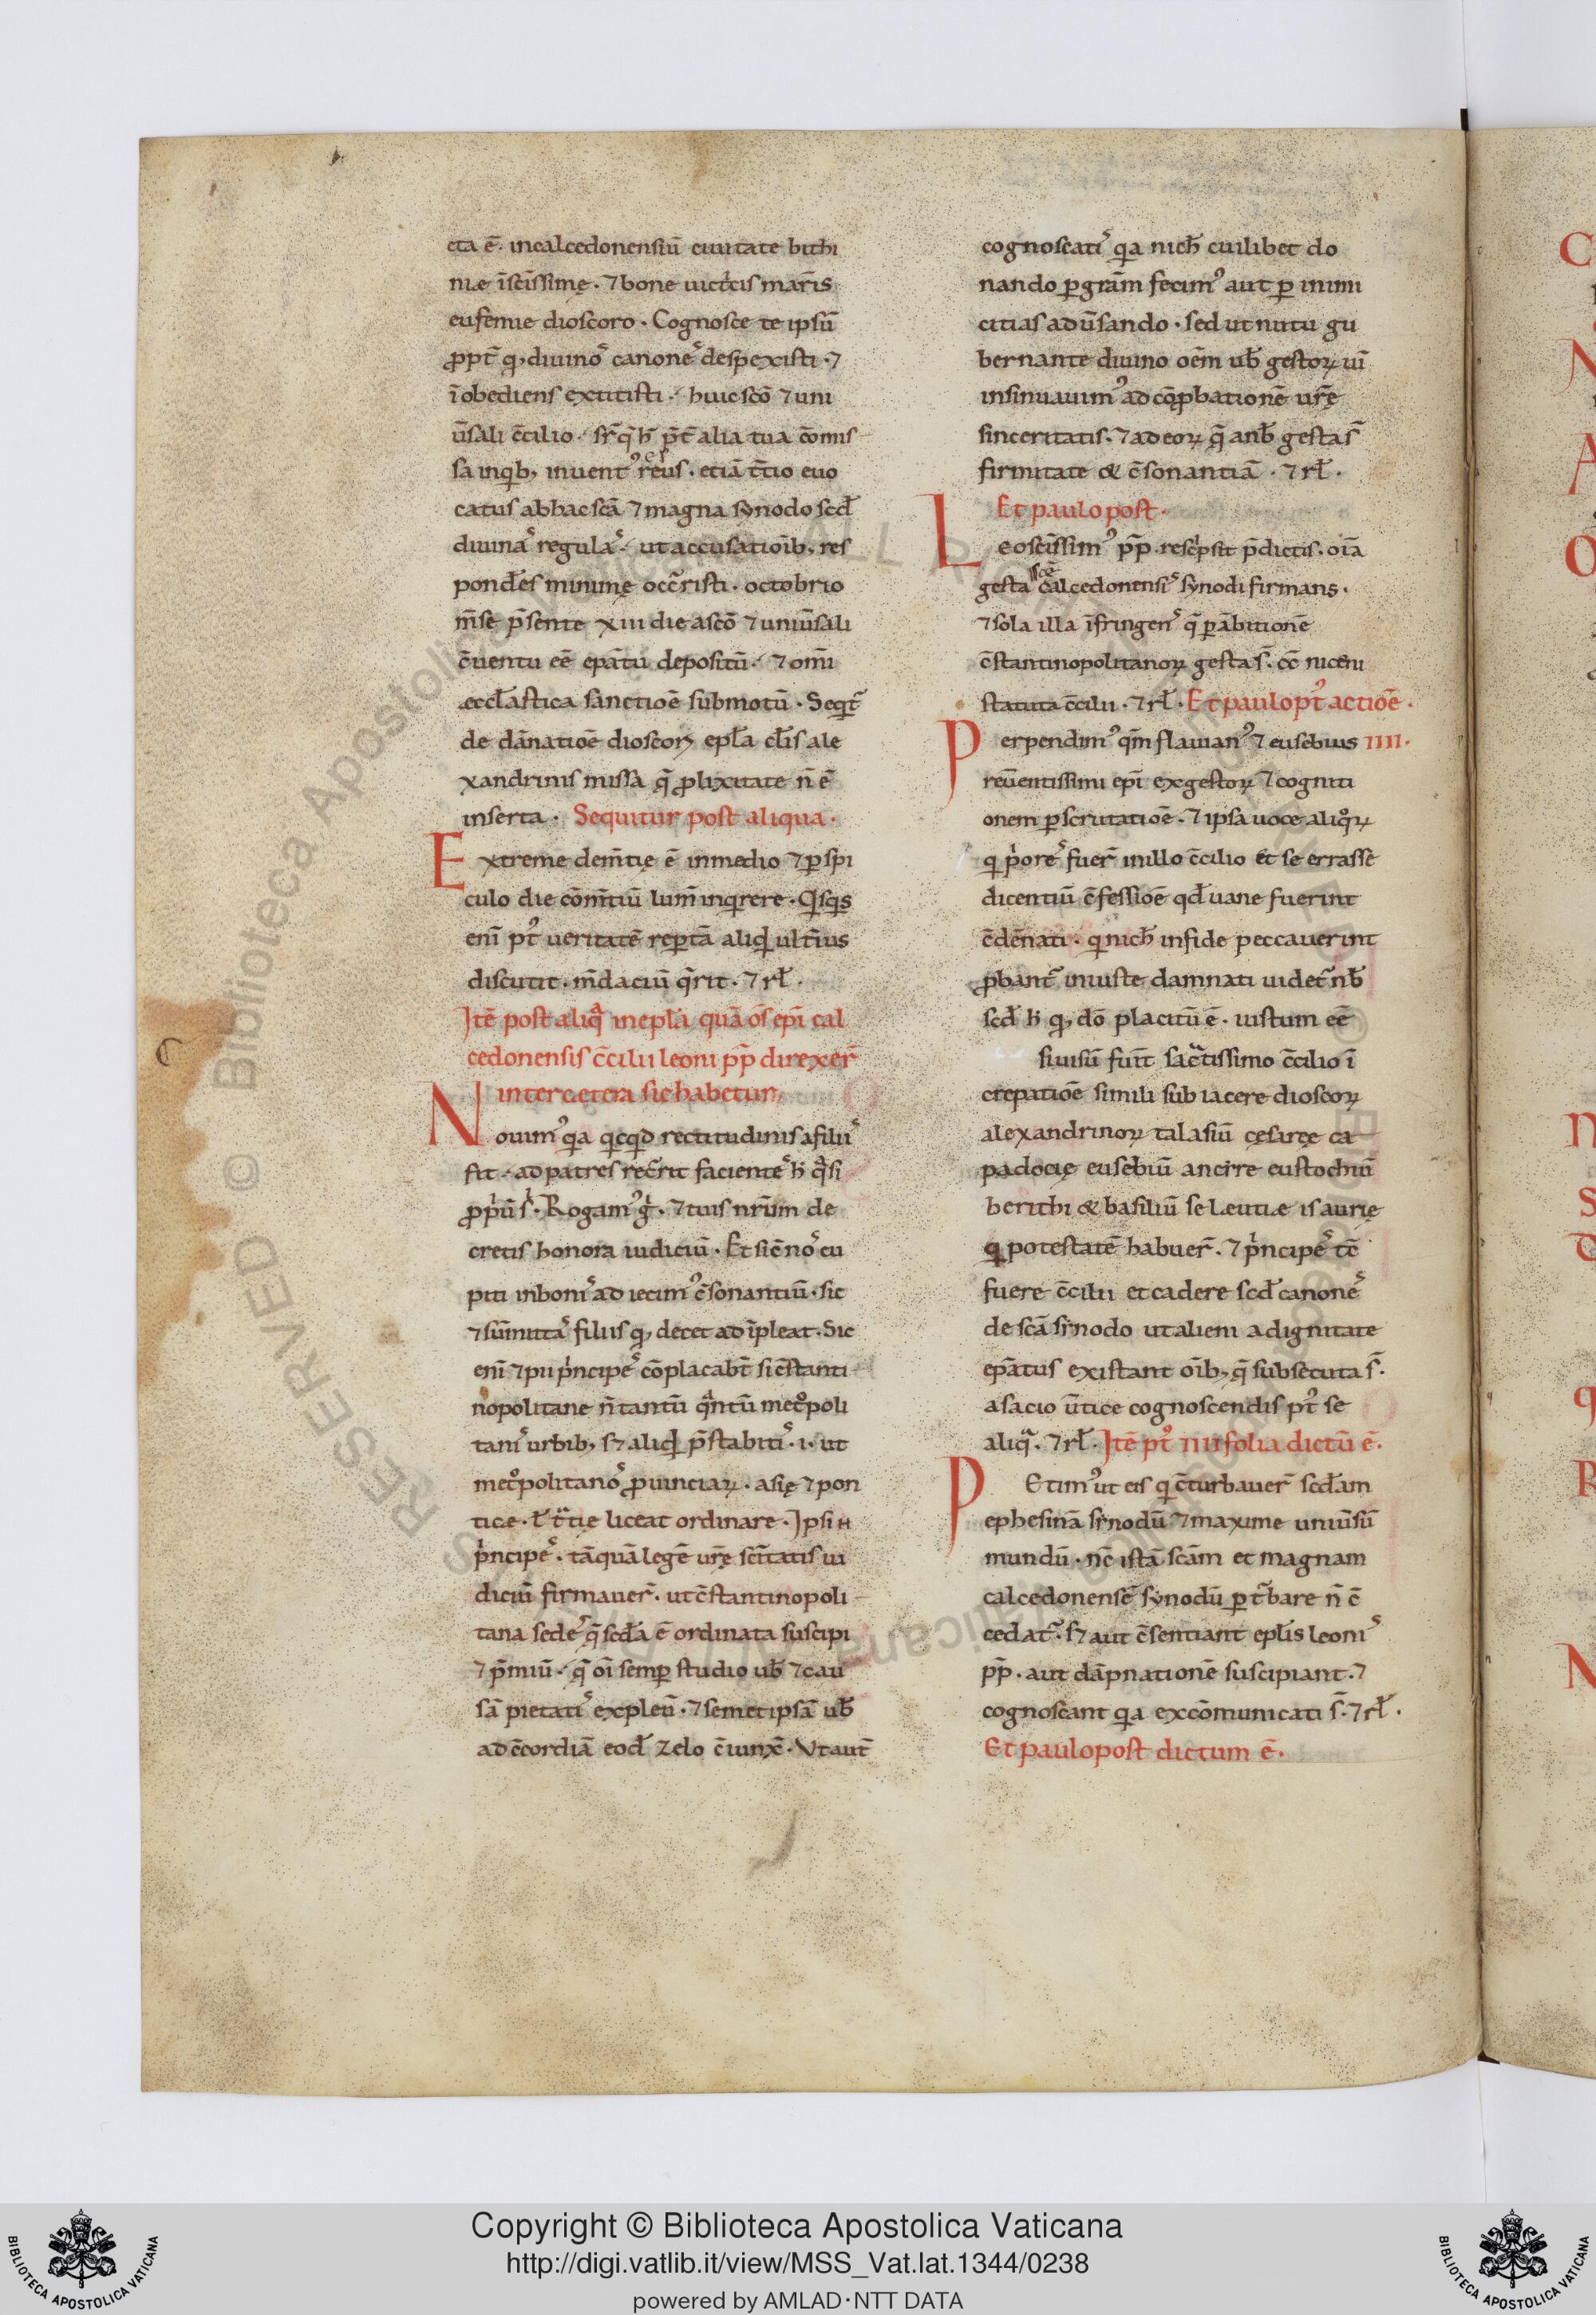 cta ē. incalcedonensiū ciuitate bithi
niæ ī scīssimę. ⁊ bone uict͛cis mar̄is
eufemie dioscoro. Cognosce te ipsū
ꝓpt̄ q, diuinoˢ canoneˢ despexisti. ⁊
īobediens extitisti. huic scō ⁊ uni
ūsali c̄cilio.
sa inq̇b, inuentꝰ reus. etiā t̄tio euo
catus ab hac scā ⁊ magna synodo scd̄
diuinaˢ regulaˢ. ut accusatioīb, res
pondēs minimę occ̄risti. octobrio
m̄se p̄sente xiii die ascō ⁊ uniūsali
c̄uentu eē epātu depositū. ⁊ om̄i
æccl̄astica sanctioē submotū. Seqt̄
de dānatioē dioscoꝝ epl̄a cl̄is ale
xandrinis missa q̄ ꝓlixitate n̄ ē
inserta. Sequitur post aliqua.
Extreme dem̄tię ē inmedio ⁊ ꝑspi
culo die cōm̄tiū lum̄ inq̇rere. Q̇sq̇s
enī ptꝰ ueritatē reꝑtā aliq̇d ult̄ius
discutit. m̄daciū q̄rit. ⁊ rł.
Itē post aliq̄ inepl̄a quā ōs epī cal
cedonensis c̄cilii leoni pp̄ direxer̄
inter cetera sic habetur,
Nouimꝰ q̇a q̇cq̇d rectitudinis afiliiˢ
fit. ad patres rec̄rit facienteˢ h̄ q̄si
ꝓp̍ū s̄. Rogamꝰ g̍. ⁊ tuis nr̄im de
cretis honora iudiciū. Et sic̄ noˢ cu
piti inboniˢ ad iecimꝰ c̄sonantiū. sic
⁊ sūmitaˢ filiis q, decet ad īpleat. Sic
enī ⁊ pii p̍ncipeˢ cōplacabt̄ si c̄stanti
nopolitane n̄ tantū q̄ntū met̊poli
taniˢ urbib, s⁊ aliq̇d p̄stabitiˢ. i. ut
met̊politanoˢ ꝓuinciaꝝ. asię ⁊ pon
tice. ł t̄tię liceat ordinare. Ipsi n̄
p̍ncipeˢ. tāquā legē ur̄ę scītatis iu
diciū firmauer̄. ut c̄stantinopoli
tana sedeˢ q̄ scd̄a ē ordinata suscipi
⁊ p̄miū. q̄ oī semꝑ studio ub̄ ⁊ cau
sā pietatiˢ expleū. ⁊ semet ipsā ub̄
ad c̄cordiā eod̄ zelo c̄iunx̄. Vt aut̄
cognoscatiˢ q̇a nich̄ cuilibet do
nando ꝑ grām fecimꝰ aut ꝑ inimi
citias adūsando. sed ut nutu gu
bernante diuino oēm ub̄ gestoꝝ uī
insinuauimꝰ ad cōꝓbationē ur̄ę
sinceritatis. ⁊ ad eoꝝ q̄ anb̄ gesta s̄
firmitate & c̄sonantiā. ⁊ rł.
Et paulo post.
Leo scīssimꝰ pp̄. resc̍psit p̄dictis. oīa
gesta sce calcedonensiˢ synodi firmans.
⁊ sola illa īfringenˢ q̄ ꝑ ābitionē
c̄stantinopolitanoꝝ gesta s̄. cc̄ niceni
statuta c̄cilii. ⁊ rł. Et paulo ptꝰ actiōē.
Perpendimꝰ qm̄ flauianꝰ ⁊ eusebius IIII.
reūentissimi epī exgestoꝝ ⁊ cogniti
onem ꝑscrutatioē. ⁊ ipsa uoce aliqꝝ
q̇ p̍oreˢ fuer̄ inillo c̄cilio et se errasse
dicentiū c̄fessioē qd̄ uane fuerint
c̄dēnati. q̇ nich̄ infide peccauerint
ꝓbant̄ iniuste damnati uidet̄ nb̄
scd̄ h̄ q, dō placitū ē. iustum eē
siuisū fuīt sāctissimo c̄cilio ī
crepatioē simili sub iacere dioscoꝝ
alexandrinoꝝ talasiū cęsaręe ca
padocię eusebiū ancire eustochiū
berithi & basiliū seleutiæ isaurię
q̇ potestatē habuer̄. ⁊ p̍ncipeˢ tc̄
fuere c̄cilii et cadere scd̄ canoneˢ
de scā synodo ut alieni adignitate
epātus existant oīb, q̄ subsecuta s̄.
asacio ūtice cognoscendis ptꝰ se
aliq̄. ⁊ rł. Itē ptꝰ IIII folia dictū ē.
Petimꝰ ut eis q̇ c̄turbauer̄ scd̄am
ephesinā synodū ⁊ maxime uniūsū
mundū. nc̄ istā scām et magnam
calcedonensē synodū ꝑt̄bare n̄ c̄
cedat̄. s⁊ aut c̄sentiant epl̄is leoniˢ
pp̄. aut dāpnationē suscipiant. ⁊
cognoscant q̇a excōmunicati s̄. ⁊ rł.
Et paulo post dictum ē.
Copyright © Biblioteca Apostolica Vaticana
http://digi.vatlib.it/view/MSS_Vat.lat.1344/0238
powered by AMLAD·NTT DATA